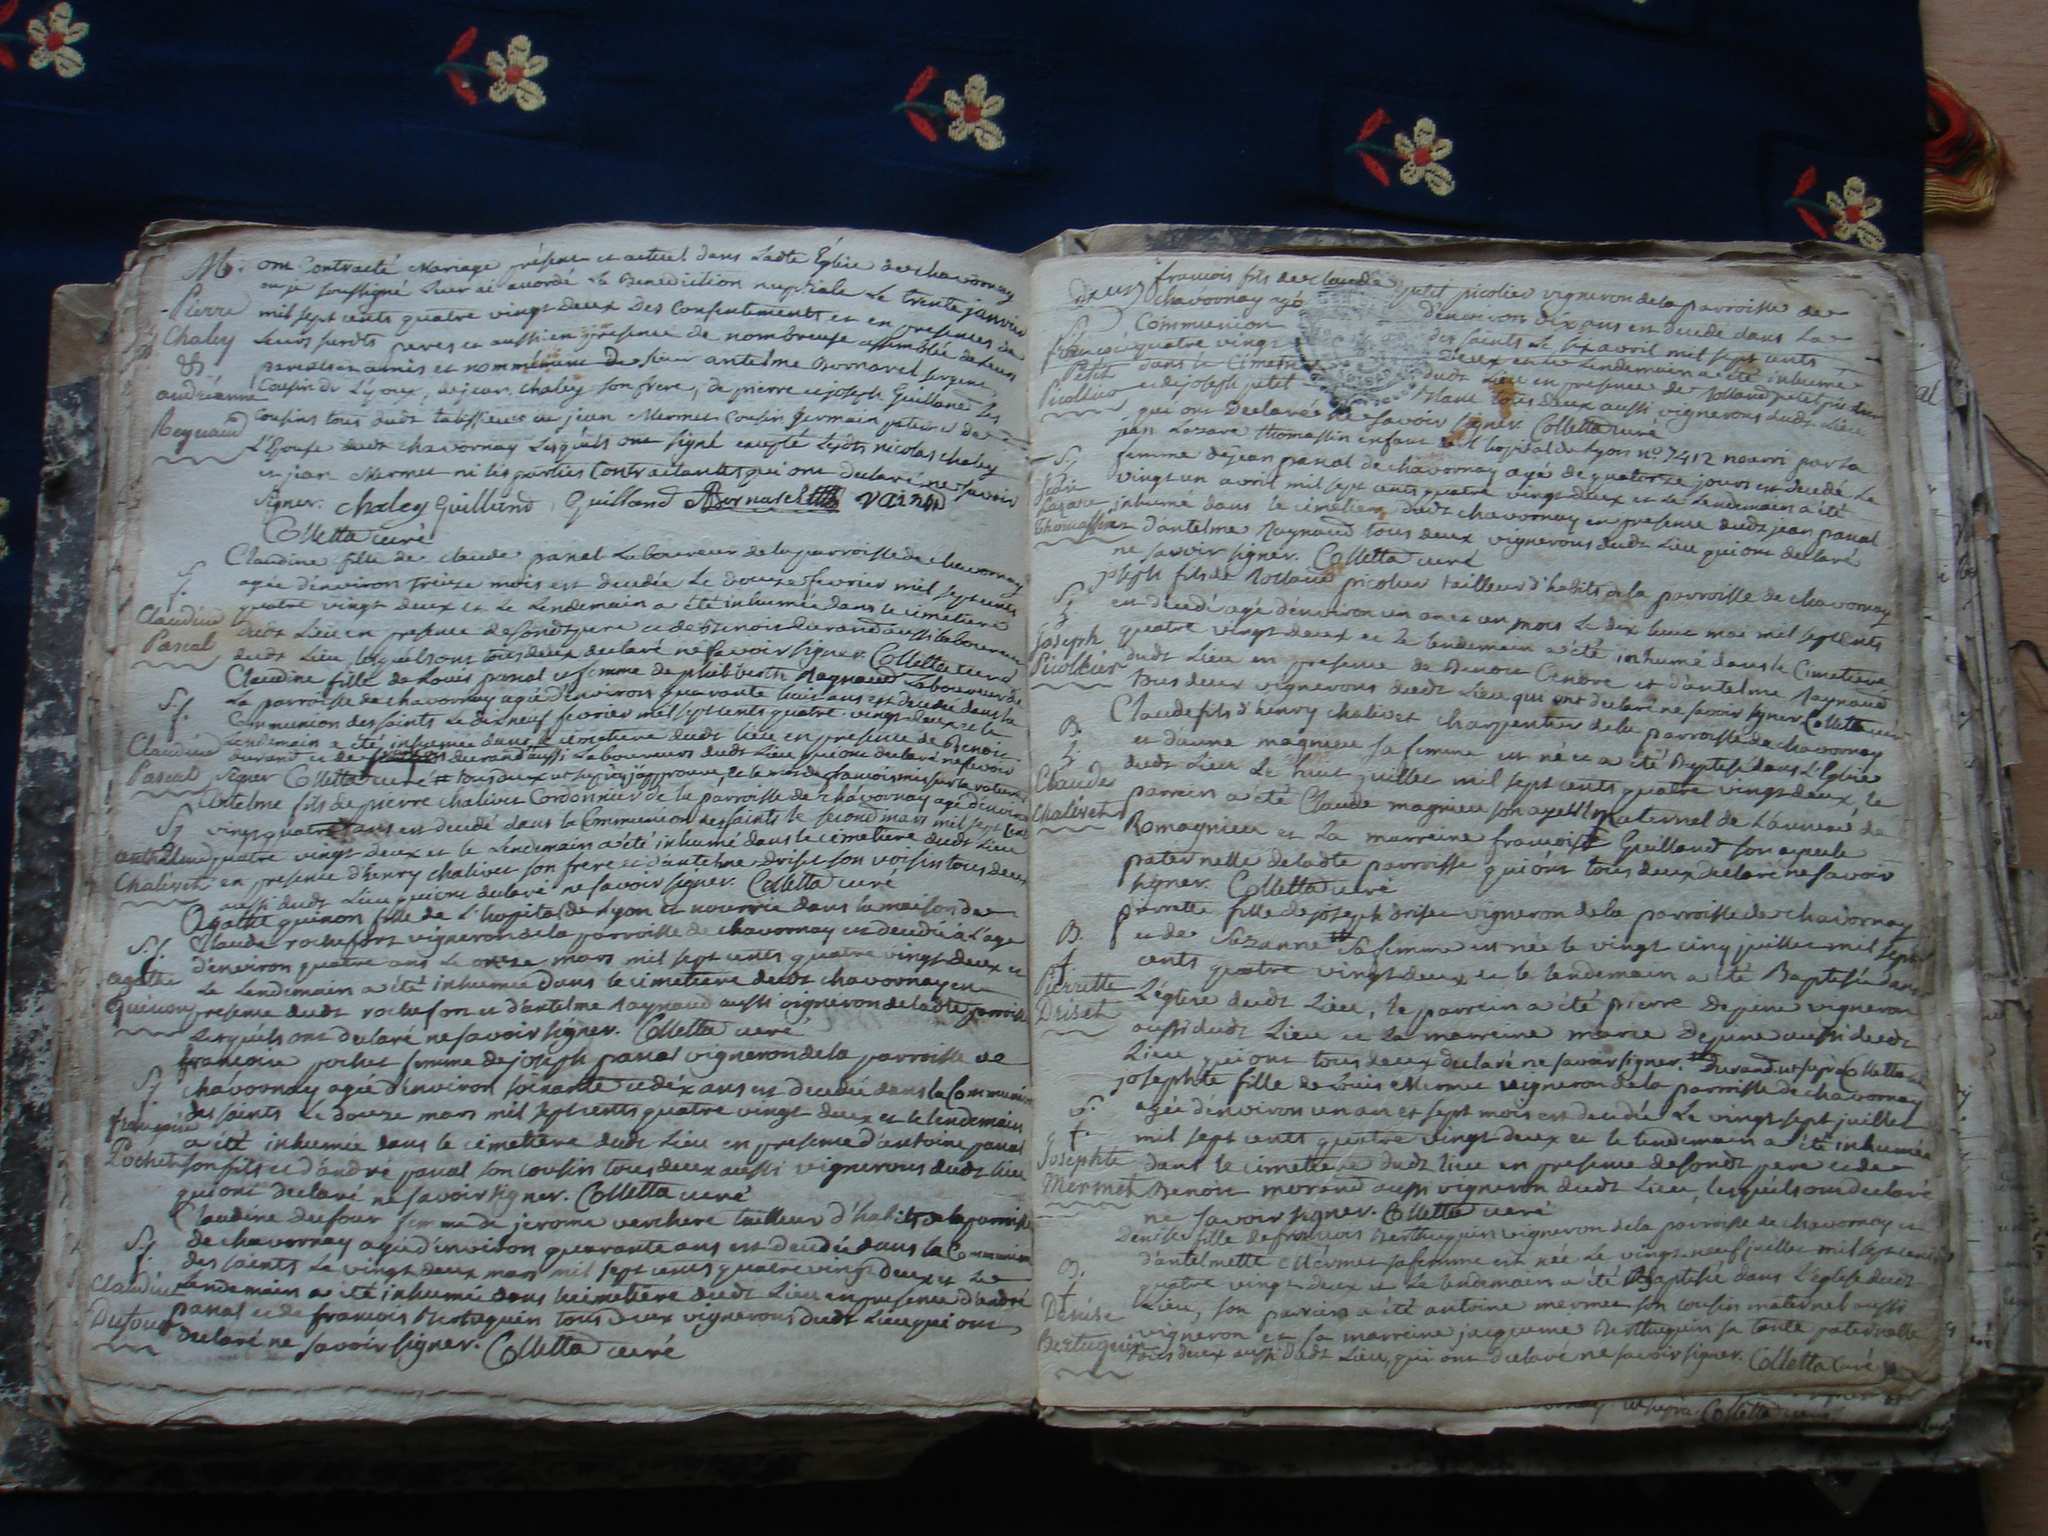 M.
Pierre
Chaley
&
andréanne
Reynaud
ont Contracté Mariage présent et actuel dans Ladte Église de chavornay
ou je soussigné Leur ai accordé La Benediction nuptiale Le trente janvier
mil sept cents quatre vingt deux Des Consentements et en presences de
Leurs susdts peres et aussi en presence de nombreuse assemblée de Leurs
parents et amis et nommément de sieur antelme Bornarel sergent
Cousin de L'époux, de jean chaley son frere, de pierre et joseph Guilland Les
cousins tous dudt et jean Mermet Cousin Germain paternel de
L'Epouse dudt chavornay Lesquels ont signé excepté Lesdts nicolas chaley
et jean Mermet ni les parties Contractantes qui ont declaré ne savoir
signer. chaley Guilland Guilland
Colletta curé
S.
f.
Claudine
Pascal
Claudine fille de claude panal Laboureur de la parroisse de chavornay
agée d'environ treize mois est decedée Le douze fevrier mil sept cents
quatre vingt deux et Le Lendemain a été inhumée dans le cimetiere
dudt Lieu en presence de sondt pere et de Benoit durand aussi laboureur
dudt Lieu, lesquels ont tous deux declaré ne savoir signer. Colletta curé
S.
f.
Claudine
Pascal
Claudine fille de Louis panal et femme de philiberth Raynaud Laboureur de
La parroisse de chavornay agée d'environ quarante huit ans est decedée dans la
Communion des saints Le dix neuf fevrier mil sept cents quatre vingt deux et le
Lendemain a été inhumée dans le cimetiere dudt lieu en presence de Benoit
durand et de durand aussi Laboureurs dudt Lieu qui ont declaré ne savoir
signer Colletta curé tous deux ut supra j'approuve
S.
f.
anthelme
Chalivet
Antelme fils de pierre chalivet Cordonnier de la parroisse de chavornay agé d'environ
vingt quatre ans est decedé dans la Communion des saints le second mars mil sept cents
quatre vingt deux et le Lendemain a été inhumé dans le cimetiere dudt Lieu
en presence d'henry chalivet son frere et d'antelme driset son voisin tous deux
aussi dudt Lieu qui ont declaré ne savoir signer. Colletta curé
S. f.
agathe
Guinon
Agathe guinon fille de L'hopital de Lyon et nourrie dans la maison de
Claude rochefort vigneron de la parroisse de chavornay est decedée à L'age
d'environ quatre ans Le onze mars mil sept cents quatre vingt deux et
Le Lendemain a été inhumée dans le cimetiere dudt chavornay en
presence dudt rochefort et d'antelme raynaud aussi vigneron de ladte parroisse
Lesquels ont declaré ne savoir signer. Colletta curé
S.
f.
françoise
Pochet
françoise pochet femme de joseph panal vigneron de la parroisse de
chavornay agée d'environ soixante et dix ans est decedée dans la Communion
des saints Le douze mars mil sept cents quatre vingt deux et le lendemain
a été inhumée dans le cimetiere dudt Lieu en presence d'antoine panal
son fils et d'andré panal son cousin tous deux aussi vignerons dudt lieu
qui ont declaré ne savoir signer. Colletta curé
S.
f.
Claudine
Dufour
Claudine dufour femme de jerome verchere tailleur d'habits de la parroisse
de chavornay agée d'environ quarante ans est decedée dans la Communion
des saints Le vingt deux mars mil sept cents quatre vingt deux et Le
Lendemain a été inhumée dans le cimetiere dudt Lieu en presence d'andré
panal et de françois Bertuquin tous deux vignerons dudt Lieu qui ont
declaré ne savoir signer. Colletta curé
deux
S.
françois
Petit
Picollier
françois fils de claude petit picolier vigneron de la parroisse de
chavornay agé d'environ dix ans est decedé dans La
Communion des saints Le six avril mil sept cents
quatre vingt deux et le Lendemain a été inhumé
dans le Cimetiere dudt Lieu en presence de rolland petit
et de joseph petit tous deux aussi vignerons dudt Lieu
qui ont declaré ne savoir signer. Colletta curé
S.
Jean
Lazare
Thomassin
jean Lazare thomassin enfant de L'hopital de Lyon no. 7412 nourri par la
femme de jean panal de chavornay agé de quatorze jours est decedé Le
vingt un avril mil sept cents quatre vingt deux et Le Lendemain a été
inhumé dans le cimetiere dudt chavornay en presence dudt jean panal
d'antelme raynaud tous deux vignerons dudt Lieu qui ont declaré
ne savoir signer. Colletta curé
S.
f.
Joseph
Picollier
joseph fils de rolland picolier tailleur d'habits de la parroisse de chavornay
est decedé agé d'environ un an et un mois Le dix huit mai mil sept cents
quatre vingt deux et Le lendemain a été inhumé dans le Cimetiere
dudt Lieu en presence de Benoit et d'antelme raynaud
tous deux vignerons dudt Lieu qui ont declaré ne savoir signer. Colletta curé
B.
f.
Claude
Chalivet
Claude fils d'henry chalivet charpentier de la parroisse de chavornay
et d'anne magnieu sa femme est né et a été Baptisé dans L'Eglise
dudt Lieu Le huit juillet mil sept cents quatre vingt deux, le
parrein a été Claude magnieu son ayeul maternel de
Romagnieu et La marreine françoise Guilland son ayeule
paternelle de ladte parroisse qui ont tous deux declaré ne savoir
signer. Colletta curé
B.
f
Pierrette
Driset
pierrette fille de joseph driset vigneron de la parroisse de chavornay
et de Suzanne sa femme est née le vingt cinq juillet mil sept
cents quatre vingt deux et le lendemain a été Baptisée dans
L'église dudt Lieu, le parrein a été pierre dejeine vigneron
aussi dudt Lieu et La marreine marie Dejeine aussi dudt
Lieu qui ont tous deux declaré ne savoir signer. Durand ut supra Colletta curé
S.
f.
Josephte
Mermet
josephte fille de Louis Mermet vigneron de la parroisse de chavornay
agée d'environ un an et sept mois est decedée Le vingt sept juillet
mil sept cents quatre vingt deux et le lendemain a été inhumée
dans le cimetiere dudt lieu en presence de sondt pere et de
Benoit morand aussi vigneron dudt Lieu, lesquels ont declaré
ne savoir signer. Colletta curé
B.
f
Denise
Bertuquin
Denise fille de françois Berthuquin vigneron de la parroisse de chavornay et
d'antelmette Mermet sa femme est née Le vingt neuf juillet mil sept cents
quatre vingt deux et Le lendemain a été Baptisée dans L'église dudt
Lieu, son parrein a été antoine mermet son cousin maternel aussi
vigneron et sa marreine jacqueme Berthuquin sa tante paternelle
tous deux aussi dudt Lieu, qui ont declaré ne savoir signer. Colletta Curé
ut supra Colletta curé